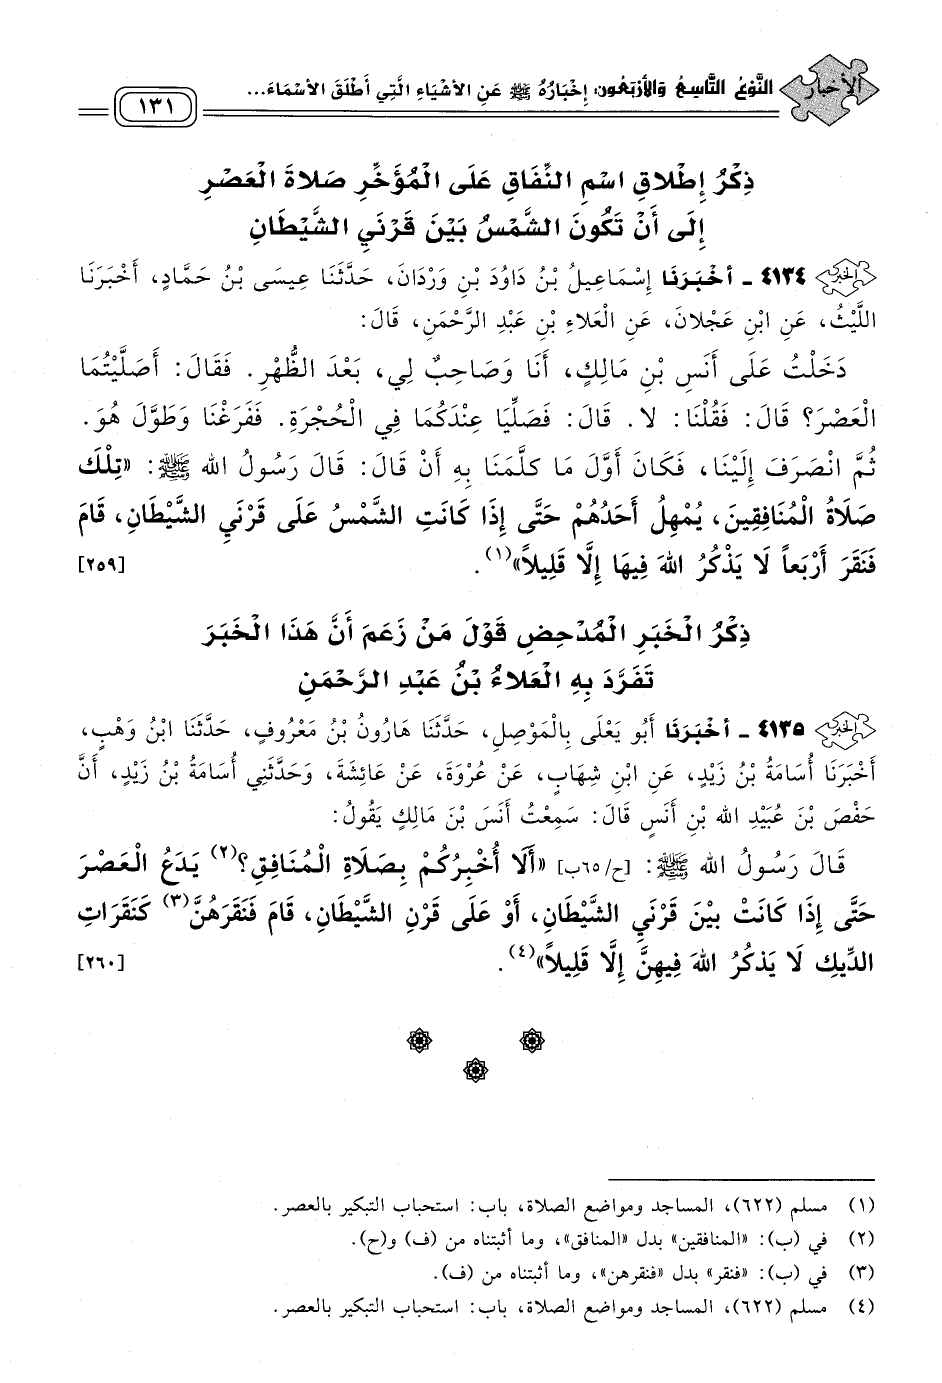 الأخبار
النَّوْعُ التَّاسِعُ وَالأَرْبَعُون: إِخْبَارُهُ ﷺ عَنِ الأَشْيَاءِ الَّتِي أَطْلَقَ الأَسْمَاءَ...
١٣١
ذِكْرُ إِطْلَاقِ اسْمِ النِّفَاقِ عَلَى الْمُؤَخِّرِ صَلَاةَ الْعَصْرِ
إِلَى أَنْ تَكُونَ الشَّمْسُ بَيْنَ قَرْنَيِ الشَّيْطَانِ
٤١٣٤ ـ أَخْبَرَنَا إِسْمَاعِيلُ بْنُ دَاوُدَ بْنِ وَرْدَانَ، حَدَّثَنَا عِيسَى بْنُ حَمَّادٍ، أَخْبَرَنَا
اللَّيْثُ، عَنِ ابْنِ عَجْلَانَ، عَنِ الْعَلَاءِ بْنِ عَبْدِ الرَّحْمَنِ، قَالَ:
دَخَلْتُ عَلَى أَنَسِ بْنِ مَالِكٍ، أَنَا وَصَاحِبٌ لِي، بَعْدَ الظُّهْرِ. فَقَالَ: أَصَلَّيْتُمَا
الْعَصْرَ؟ قَالَ: فَقُلْنَا: لا. قَالَ: فَصَلِّيَا عِنْدَكُمَا فِي الْحُجْرَةِ. فَفَرَغْنَا وَطَوَّلَ هُوَ.
ثُمَّ انْصَرَفَ إِلَيْنَا، فَكَانَ أَوَّلَ مَا كَلَّمَنَا بِهِ أَنْ قَالَ: قَالَ رَسُولُ اللهِ ﷺ: «تِلْكَ
صَلَاةُ الْمُنَافِقِينَ، يُمْهِلُ أَحَدُهُمْ حَتَّى إِذَا كَانَتِ الشَّمْسُ عَلَى قَرْنَيِ الشَّيْطَانِ، قَامَ
فَنَقَرَ أَرْبَعاً لَا يَذْكُرُ اللهَ فِيهَا إِلَّا قَلِيلاً»(١). [٢٥٩]
ذِكْرُ الْخَبَرِ الْمُدْحِضِ قَوْلَ مَنْ زَعَمَ أَنَّ هَذَا الْخَبَرَ
تَفَرَّدَ بِهِ الْعَلَاءُ بْنُ عَبْدِ الرَّحْمَنِ
٤١٣٥ ـ أَخْبَرَنَا أَبُو يَعْلَى بِالْمَوْصِلِ، حَدَّثَنَا هَارُونُ بْنُ مَعْرُوفٍ، حَدَّثَنَا ابْنُ وَهْبٍ،
أَخْبَرَنَا أُسَامَةُ بْنُ زَيْدٍ، عَنِ ابْنِ شِهَابٍ، عَنْ عُرْوَةَ، عَنْ عَائِشَةَ، وَحَدَّثَنِي أُسَامَةُ بْنُ زَيْدٍ، أَنَّ
حَفْصَ بْنَ عُبَيْدِ اللهِ بْنِ أَنَسٍ قَالَ: سَمِعْتُ أَنَسَ بْنَ مَالِكٍ يَقُولُ:
قَالَ رَسُولُ اللهِ ﷺ: [ح/٦٥ب] «أَلَا أُخْبِرُكُمْ بِصَلَاةِ الْمُنَافِقِ؟(٢) يَدَعُ الْعَصْرَ
حَتَّى إِذَا كَانَتْ بَيْنَ قَرْنَيِ الشَّيْطَانِ، أَوْ عَلَى قَرْنِ الشَّيْطَانِ، قَامَ فَنَقَرَهُنَّ(٣) كَنَقَرَاتِ
الدِّيكِ لَا يَذْكُرُ اللهَ فِيهِنَّ إِلَّا قَلِيلاً»(٤). [٢٦٠]
(١) مسلم (٦٢٢)، المساجد ومواضع الصلاة، باب: استحباب التبكير بالعصر.
(٢) في (ب): «المنافقين» بدل «المنافق»، وما أثبتناه من (ف) و(ح).
(٣) في (ب): «فنقر» بدل «فنقرهن»، وما أثبتناه من (ف).
(٤) مسلم (٦٢٢)، المساجد ومواضع الصلاة، باب: استحباب التبكير بالعصر.